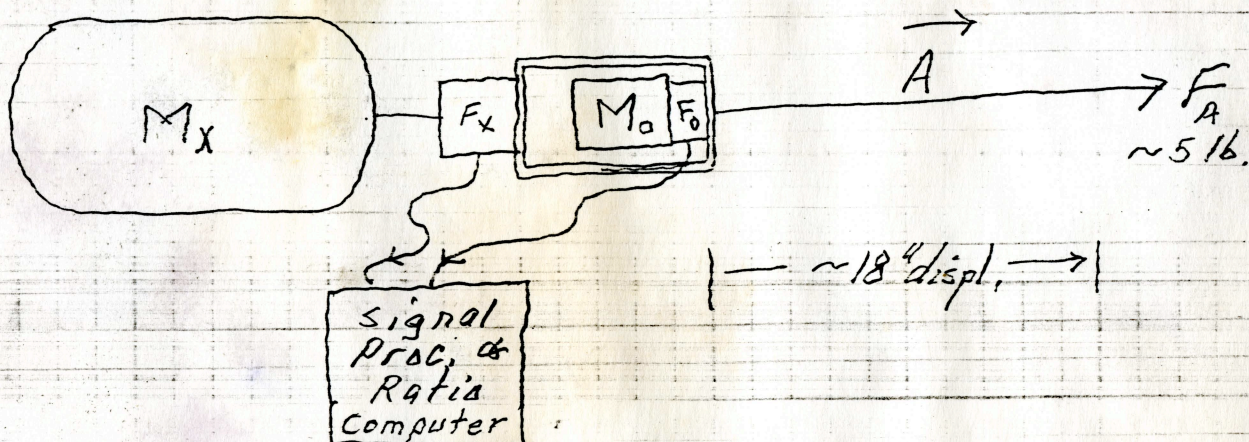 A
Mx Fx Mo Fo FA
~5 lb.
|— ~18" displ. →|
signal
Proc. &
Ratio
Computer